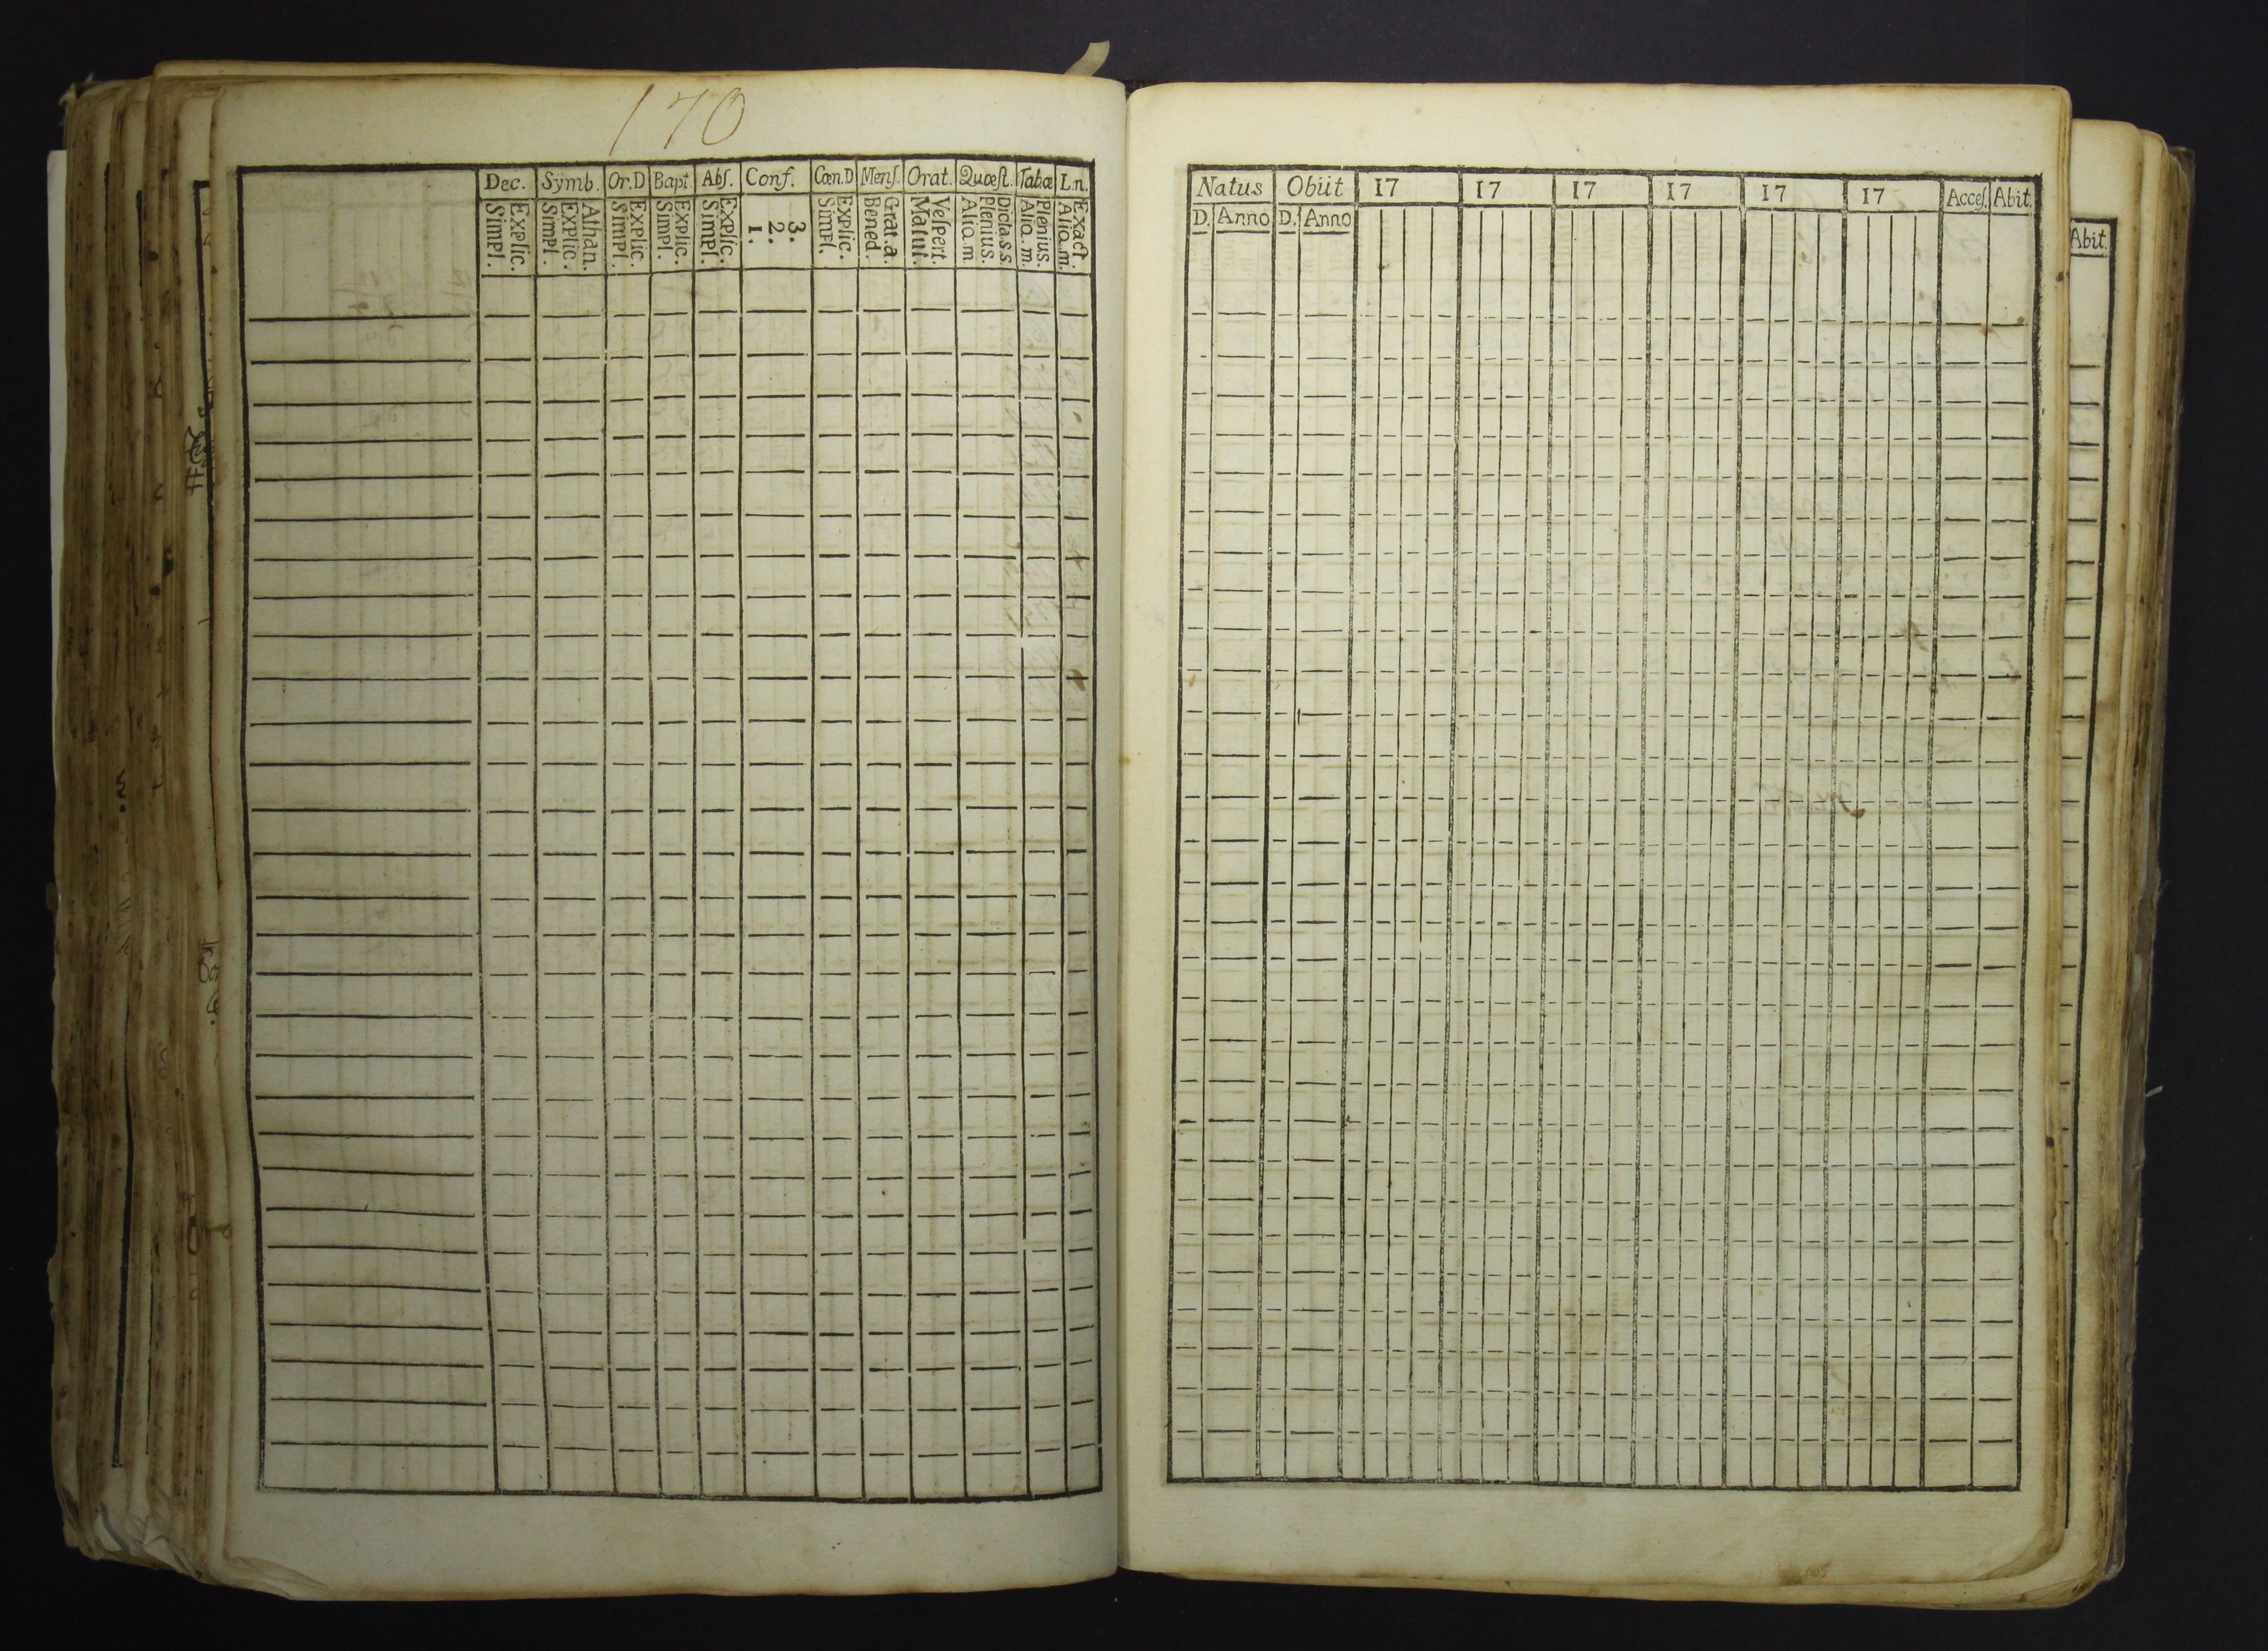 170
Dec. Sÿmb. Or.D Bapt. Abſ. Conf. Cœn.D Menſ. Orat. Quæſt. Tabæ L.n.
Simpl. Explic. Simpl. Explic. Athan. Simpl. Explic. Simpl. Explic. Simpl. Explic. 1. 2. 3. Simpl. Explic. Bened. Grat.a. Matut. Veſpert. Aliq.m Plenius. Dicta.s.s. Aliq.m. Plenius. Aliq.m. Exact.
Natus Obiit 17 17 17 17 17 17 Acceſ. Abit.
D. Anno D. Anno
Abit.